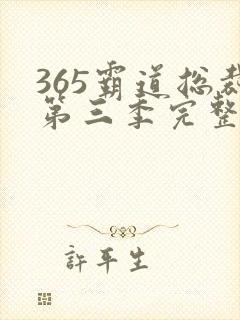 365霸道总裁
第三季完整
許平生